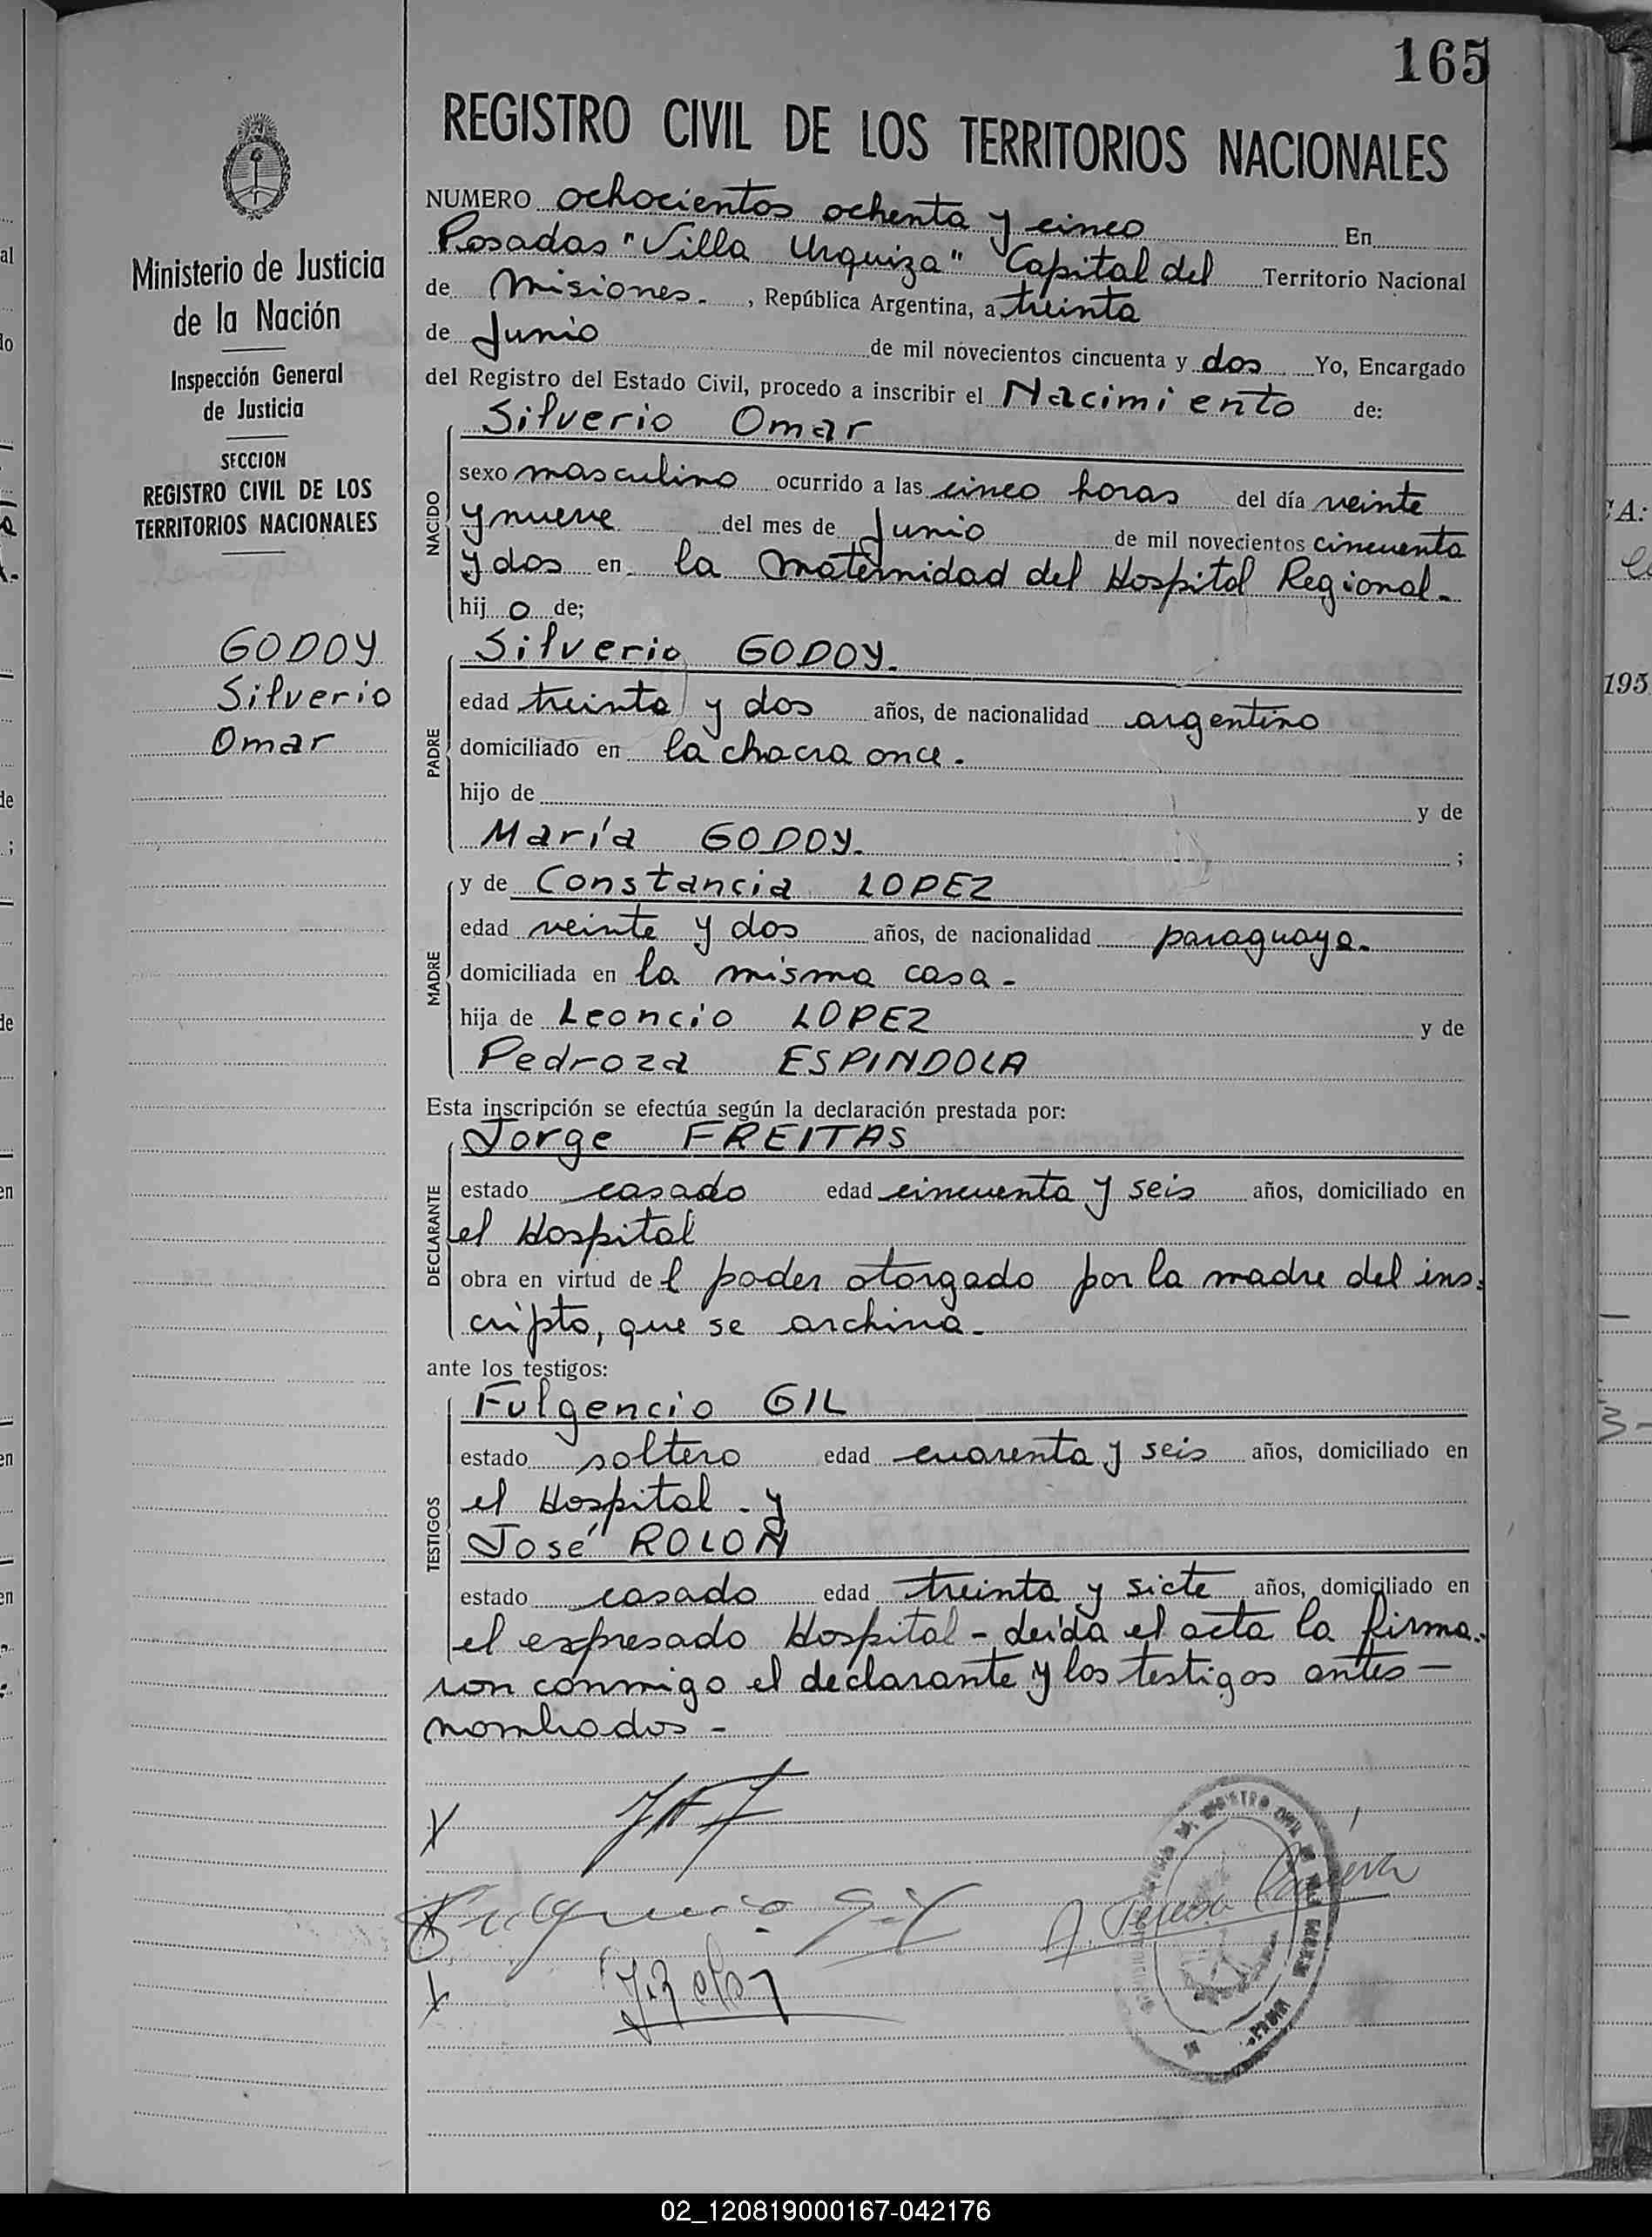 165
REGISTRO CIVIL DE LOS TERRITORIOS NACIONALES
Ministerio de Justicia
de la Nación
Inspección General
de Justicia
SECCION
REGISTRO CIVIL DE LOS
TERRITORIOS NACIONALES
GODOY
Silverio
Omar
NUMERO ochocientos ochenta y cinco En
Posadas "Villa Urquiza" Capital del Territorio Nacional
de Misiones. , República Argentina, a treinta
de Junio de mil novecientos cincuenta y dos Yo, Encargado
del Registro del Estado Civil, procedo a inscribir el Nacimiento de:
Silverio Omar
NACIDO
sexo masculino ocurrido a las cinco horas del día veinte
y nueve del mes de Junio de mil novecientos cincuenta
y dos en la Maternidad del Hospital Regional.
hij o de;
Silverio GODOY.
PADRE
edad treinta y dos años, de nacionalidad argentino
domiciliado en la chacra once.
hijo de y de
María GODOY. ;
y de Constancia LOPEZ
MADRE
edad veinte y dos años, de nacionalidad paraguaya.
domiciliada en la misma casa -
hija de Leoncio LOPEZ y de
Pedroza ESPINDOLA
Esta inscripción se efectúa según la declaración prestada por:
Jorge FREITAS
DECLARANTE
estado casado edad cincuenta y seis años, domiciliado en
el Hospital
obra en virtud de l poder otorgado por la madre del ins-
cripto, que se archiva -
ante los testigos:
Fulgencio GIL
TESTIGOS
estado soltero edad cuarenta y seis años, domiciliado en
el Hospital - y
José ROLON
estado casado edad treinta y siete años, domiciliado en
el expresado Hospital - leída el acta la firma-
ron conmigo el declarante y los testigos antes -
nombrados -
Fulgencio Gil
J. Rolon
195
02_120819000167-042176